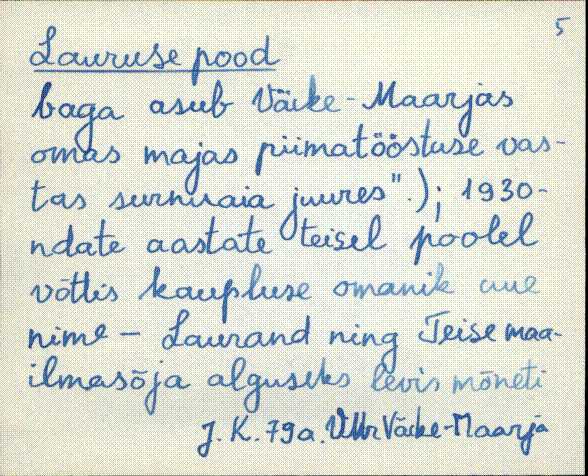 5
Lauruse pood
baga asub Väike-Maarjas
omas majas piimatööstuse vas-
tas surnuaia juures".); 1930-
ndate aastate teisel poolel
võttis kaupluse omanik uue
nime - Laurand ning Teise maa-
ilmasõja alguseks levis mõneti
J. K. 79a. Väike-Maarja